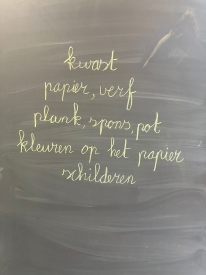 kwast
papier, verf
plank, spons, pot
kleuren op het papier
schilderen